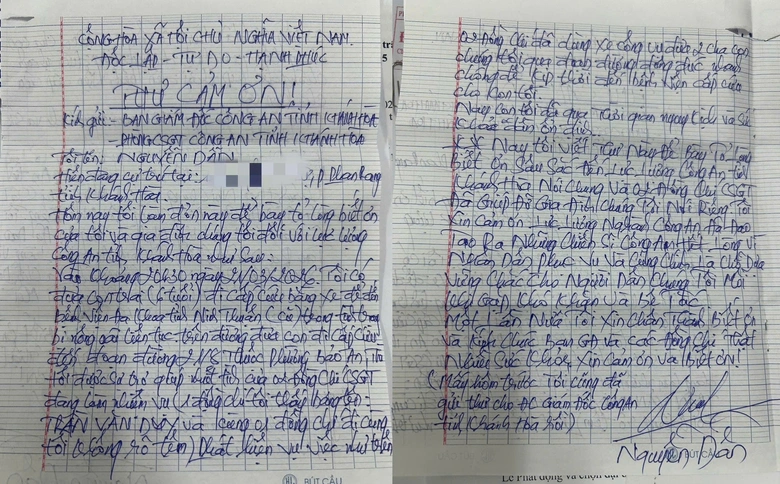 CỘNG HÒA XÃ HỘI CHỦ NGHĨA VIỆT NAM
ĐỘC LẬP - TỰ DO - HẠNH PHÚC
THƯ CẢM ƠN!
Kính gửi - BAN GIÁM ĐỐC CÔNG AN TỈNH KHÁNH HÒA
- PHÒNG CSGT CÔNG AN TỈNH KHÁNH HÒA
Tôi tên: NGUYỄN DÂN
Hiện đang cư trú tại: TP Phan Rang
tỉnh Khánh Hòa.
Hôm nay tôi làm đơn này để bày tỏ lòng biết ơn
của tôi và gia đình chúng tôi đối với lực lượng
Công An tỉnh Khánh Hòa như sau:
Vào khoảng 20h30 ngày 21/03/2026. Tôi có
đưa con trai (6 tuổi) đi cấp cứu bằng xe để đến
bệnh viện tỉnh Ninh Thuận (cũ) trong tình trạng
bị nóng co giật liên tục trên đường đưa con đi cấp cứu
đến đoạn đường 21/8 thuộc phường Bảo An, thì
tôi được sự trợ giúp nhiệt tình của 02 đồng chí CSGT
đang làm nhiệm vụ (1 đồng chí tôi thấy bảng tên:
TRẦN VĂN DUY và cùng 01 đồng chí đi cùng
tôi không rõ tên) phát hiện vụ việc như trên
02 đồng chí đã dùng xe công vụ đưa 2 cha con
chúng tôi qua đoạn đường đông đúc nhanh
chóng để kịp thời đến bệnh viện cấp cứu
cho con tôi.
Nay con tôi đã qua thời gian nguy kịch và sức
khỏe dần ổn định.
Nay tôi viết thư này để bày tỏ lòng
biết ơn sâu sắc đến lực lượng Công An tỉnh
Khánh Hòa nói chung và 02 đồng chí CSGT
đã giúp đỡ gia đình chúng tôi nói riêng. Tôi
xin cảm ơn lực lượng ngành Công An đã đào
tạo ra những chiến sĩ Công An hết lòng vì
nhân dân phục vụ và cũng chính là chỗ dựa
vững chắc cho người dân chúng tôi mỗi
khi gặp khó khăn và bế tắc
Một lần nữa tôi xin chân thành biết ơn
và kính chúc Ban GĐ và các đồng chí thật
nhiều sức khỏe, xin cảm ơn và biết ơn!
(Mấy hôm trước tôi cũng đã
gửi thư cho ĐC Giám đốc Công An
tỉnh Khánh Hòa rồi)
Nguyễn Dân
BÚT CẦU
BÚT CẦU
Lễ Phát động và